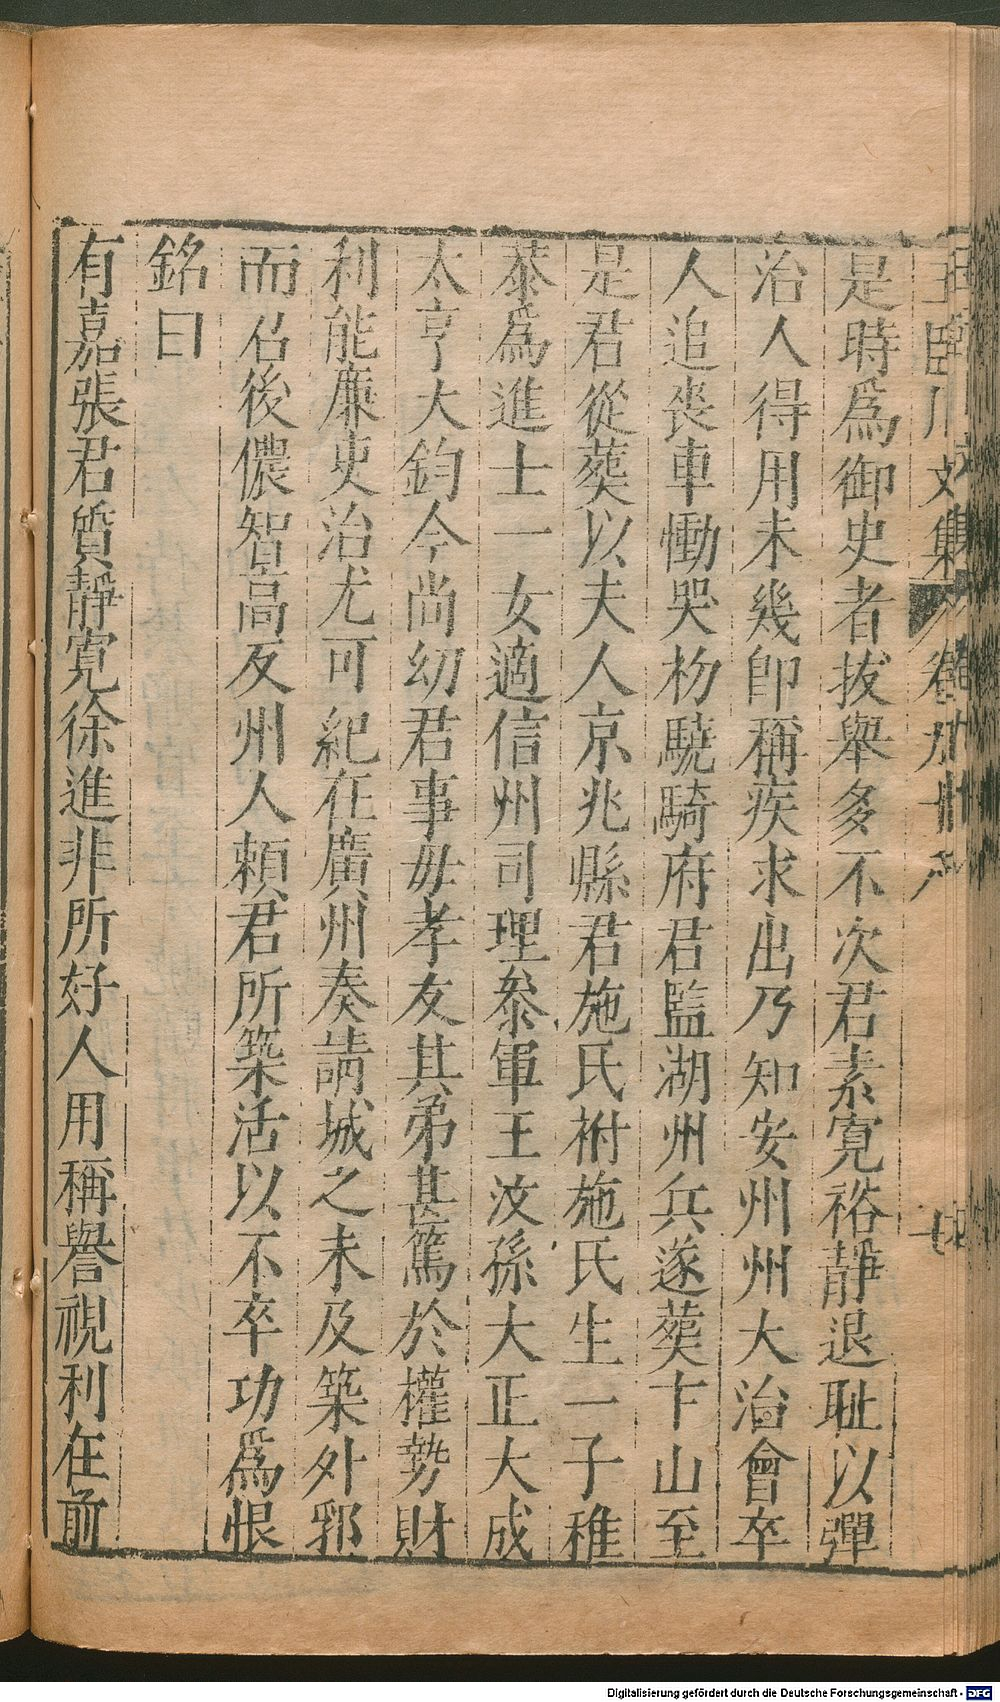 王臨川文集 卷九十六 七
是時爲御史者拔舉多不次君素寛裕靜退耻以彈
治人得用未幾卽稱疾求出乃知安州州大治會卒
人追喪車慟哭初驍騎府君監湖州兵遂葬卞山至
是君從葬以夫人京兆縣君施氏祔施氏生一子稚
恭爲進士一女適信州司理參軍王汶孫大正大成
太亨大鈞今尚幼君事毋孝友其弟甚篤於權勢財
利能廉吏治尤可紀在廣州奏請城之未及築外郛
而召後儂智高反州人賴君所築活以不卒功爲恨
銘曰
有嘉張君質靜寛徐進非所好人用稱譽視利在前
Digitalisierung gefördert durch die Deutsche Forschungsgemeinschaft - DFG